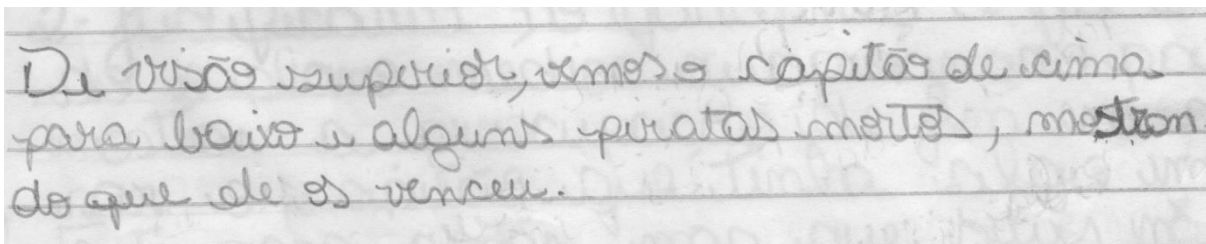 De visão superior, vemos o capitão de cima
para baixo e alguns piratas mortos, mostran
do que ele os venceu.